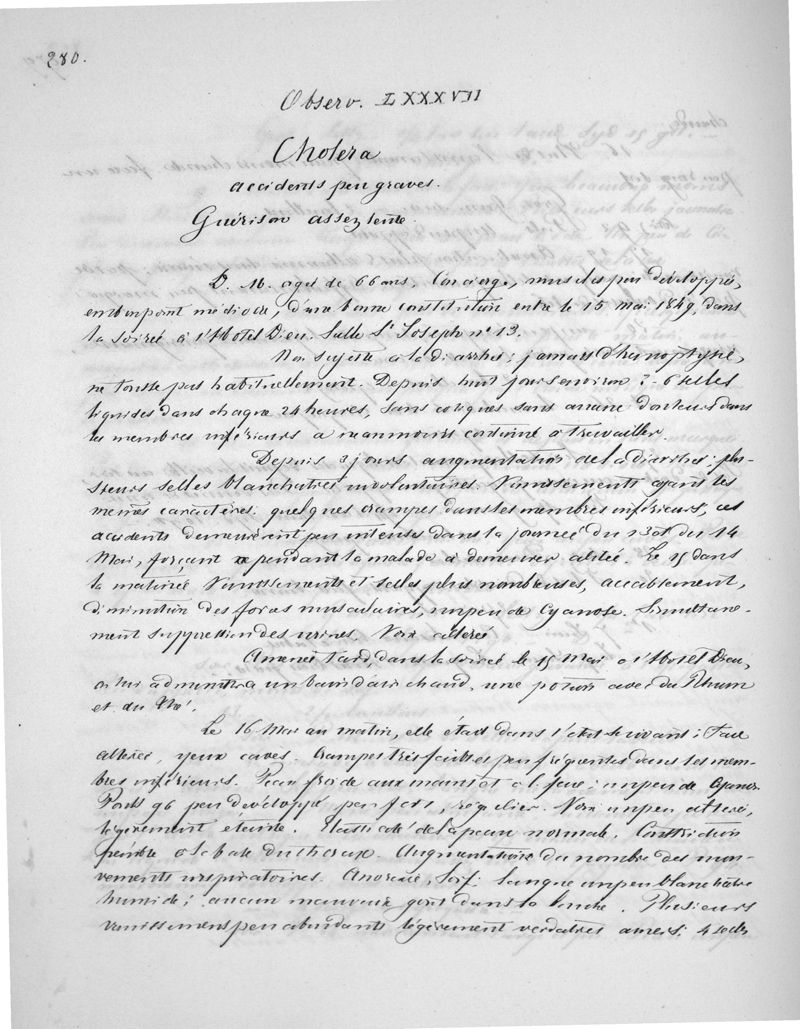 280.
Observ. LXXXVII
Cholera
accidents peu graves.
Guérison assez lente.
D. M. agée de 66 ans, Concierge, muscles peu développés,
embonpoint médiocre, d'une bonne constitution entre le 15 mai 1849, dans
la soirée à l'Hotel Dieu. Salle St Joseph no 13.
Non sujette à la diarrhée; jamais d'hemophtysie,
ne tousse pas habituellement. Depuis huit jours environ 2-6 selles
liquides dans chaque 24 heures, sans coliques sans aucune douleurs dans
les membres inférieurs a neanmoins continué à travailler.
Depuis 2 jours augmentation de la diarrhée; plu-
sieurs selles blanchatres involontaires. Vomissements ayant les
memes caractères. quelques crampes dans les membres inférieurs, ces
accidents demeurèrent peu intenses dans la journée du 13 et du 14
Mai, forçant cependant la malade à demeurer alitée. Le 15 dans
la matinée Vomissements et selles plus nombreuses, accablement,
diminution des forces musculaires, un peu de Cyanose. Simultané-
ment suppression des urines. Voix altérée
Amenée tard, dans la soirée le 15 Mai à l'Hotel Dieu,
on lui administra un bain d'air chaud, une potion avec du Rhum
et du Thé.
Le 16 Mai au matin, elle était dans l'état suivant: Face
alterée, yeux caves. Crampes très faibles peu fréquentes dans les mem-
bres inférieurs. Peau froide aux mains et à la face; un peu de Cyanose
Pouls 96 peu developpé peu fort, régulier. Voix un peu altérée,
légèrement éteinte. Elasticité de la peau normale. Constriction
penible à la base du thorax. Augmentation du nombre des mou-
vements respiratoires. Anorexie, Soif; Langue un peu blanchâtre
humide; aucun mauvais gout dans la bouche. Plusieurs
vomissemens peu abundants légèrement verdatres amers; 4 selles